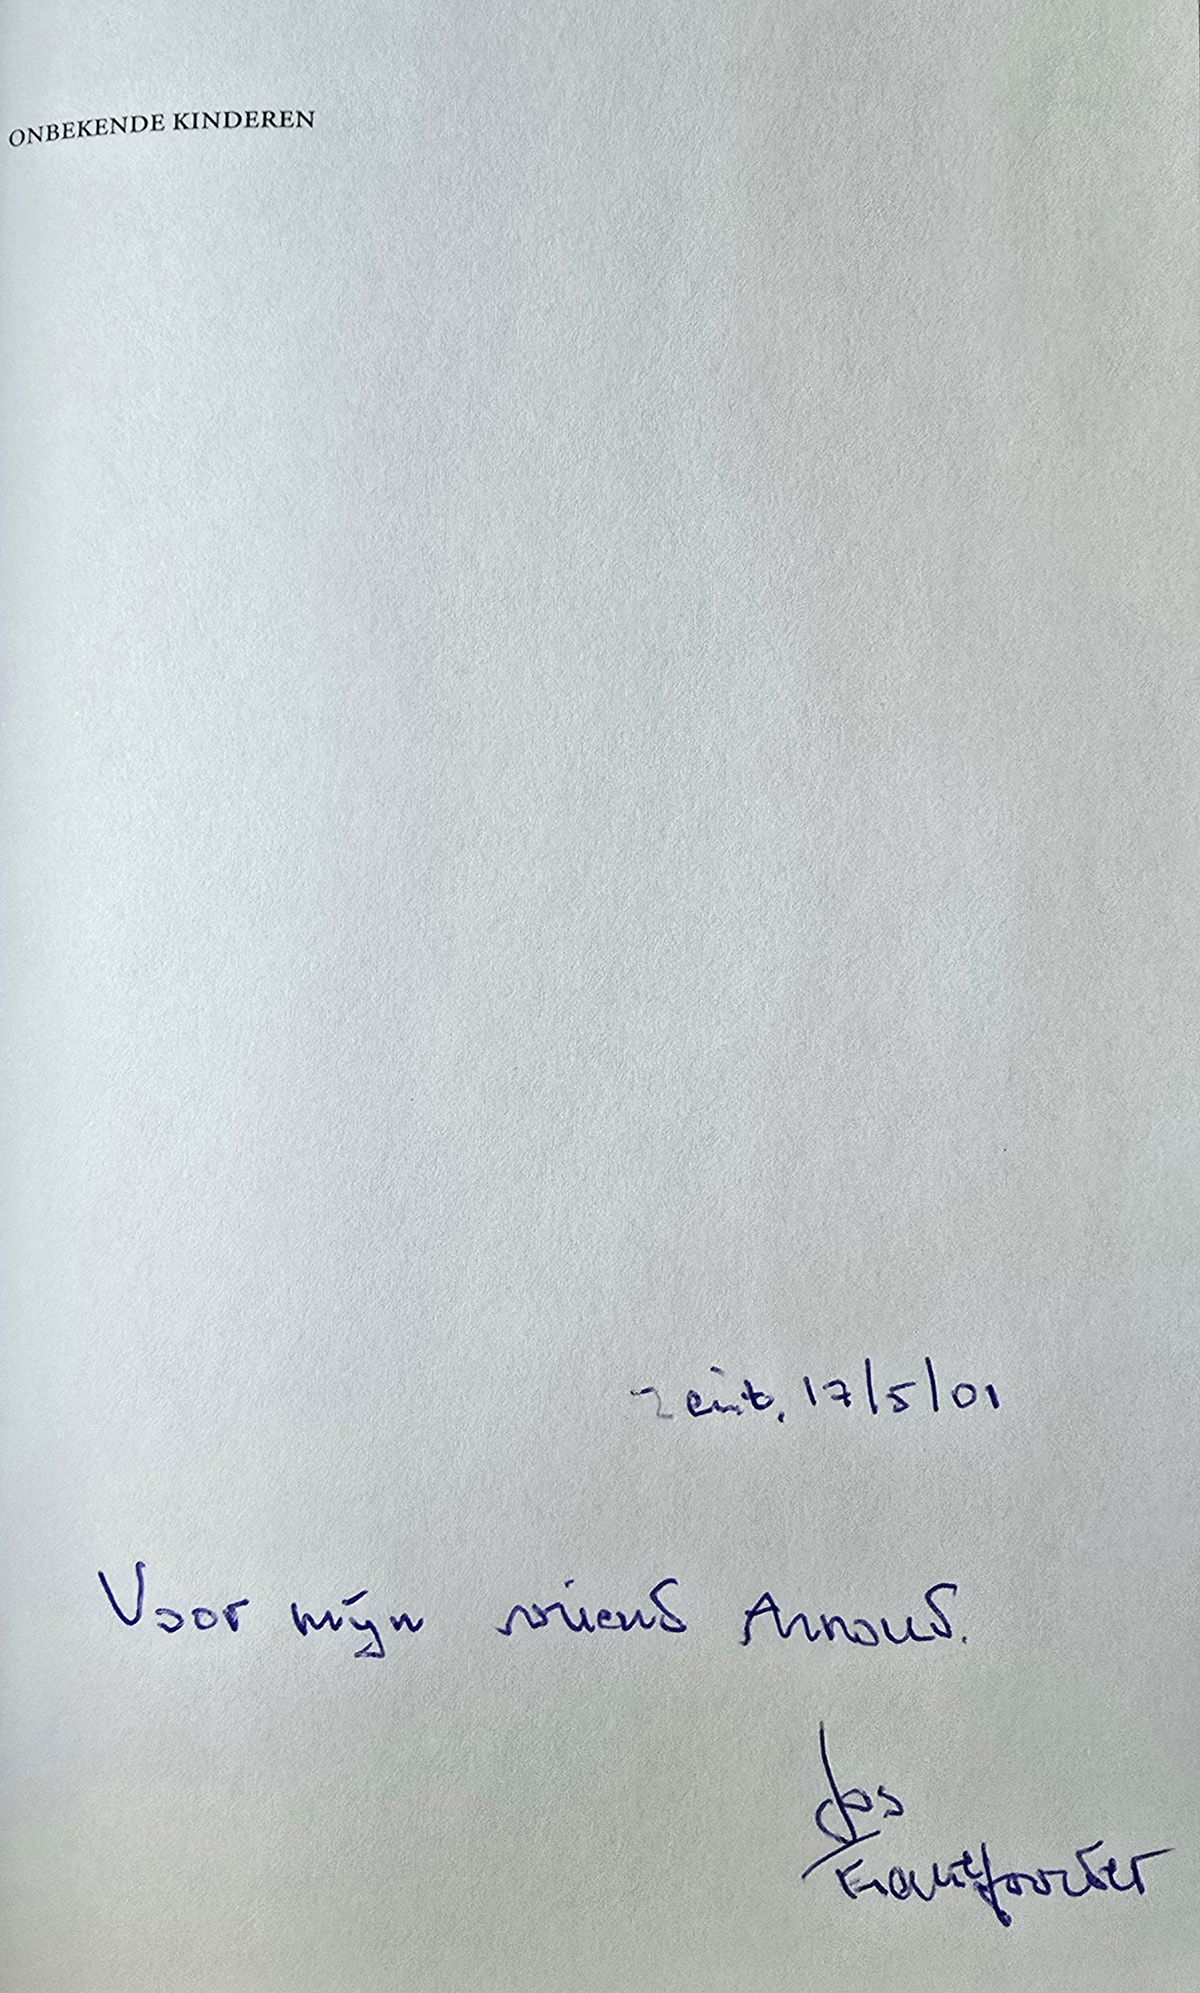 ONBEKENDE KINDEREN
Zeist, 17/5/01
Voor mijn vriend Arnoud.
Jos